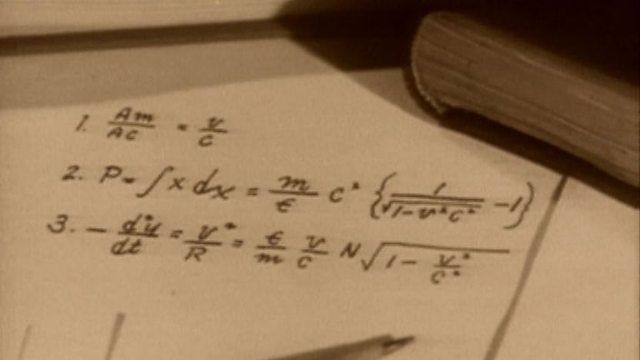 1. Am/Ac = v/c
2. P = ∫ x dx = m/ε c² {1/√1-v²c² - 1}
3. - d²y/dt = v²/R = ε/m v/c N √1 - v²/c²